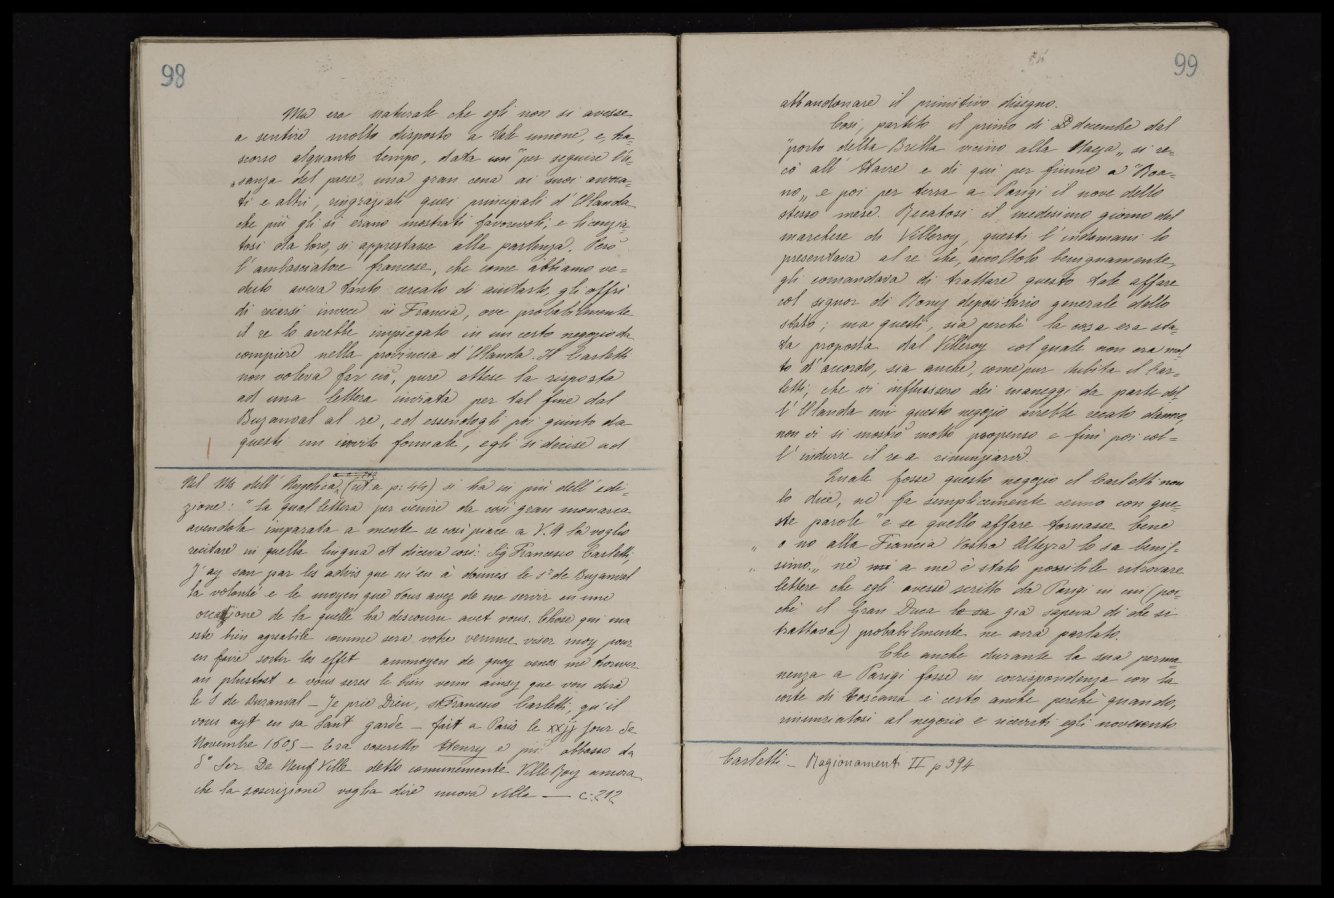 98
Ma era naturale che egli non si avesse
a sentire molto disposto a tale unione, e, tra=
scorso alquanto tempo, data un "per seguire l'u=
"sanza del paese, una gran cena ai suoi avvoca=
ti e altri, ringraziati quei principali d'Olanda
che più gli si erano mostrati favorevoli, e licenzia=
tosi da loro, si apprestasse alla partenza. Però
l'ambasciatore francese, che come abbiamo ve=
duto aveva tanto cercato di aiutarlo, gli offrì
di recarsi invece in Francia, ove probabilmente
il re lo avrebbe impiegato in un certo negozio da
compiere nella provincia d'Olanda. Il Carletti
non voleva far ciò, pure attese la risposta
ad una lettera inviata per tal fine dal
Buzanval al re, ed essendogli poi giunto da
questi un invito formale, egli si decise ad
Nel Ms dell'Angelica, (a p: 44) si ha in più dell'edi=
zione: "la qual lettera per venire da così gran monarca
avendola imparata a mente se così piace a V. A la voglio
recitare in quella lingua et diceva così: Sig Francesco Carletti,
J'ay sau par les advis que m'en à donnes le s.r de Buzanval
la volonté e le moyen que vous avez de me servir en une
occasione de la quelle ha descouru avet vous. Chose qui ma
este bien agreable comme sera votre venue viser moy pour
en faire sortir les effet ammoyen de quoy venes me trouver
au plustost e vous seres le bien venu ainsy que vou dira
le S de Buzanval — Je prie Dieu, S.r Francesco Carletti, qu'il
vous ayt en sa saint garde — fait a Paris le xxij jour de
Novembre 1605 — Era soscritto Henry e più abbasso da
S.o Ser. De Neuf Ville detto comunemente VilleRoy ancora
che la soscrizione voglia dire nuova villa — c. 212
99
abbandonare il primitivo disegno.
Così, partito il primo di decembre dal
"porto della Brilla vicino alla Haya„ si re=
cò all'Havre e di qui per fiume a "Roa=
no„ e poi per terra a Parigi il nove dello
stesso mese. Recatosi il medesimo giorno dal
marchese di Villeroy, questi l'indomani lo
presentava al re che, accoltolo benignamente,
gli comandava di trattare questo tale affare
col signor di Rony depositario generale dello
stato; ma questi, sia perchè la cosa era sta=
ta proposta dal Villeroy col quale non era mol=
to d'accordo, sia anche, come pur dubita il Car=
letti, che vi influissero dei maneggi da parte del=
l'Olanda cui questo negozio avrebbe recato danno,
non vi si mostrò molto propenso e finì poi col=
l'indurre il re a rinunziarvi
Quale fosse questo negozio il Carletti non
lo dice, nè fa semplicemente cenno con que=
ste parole "e se quello affare tornasse bene
" o no alla Francia Vostra Altezza lo sa benis=
" simo„ nè a me è stato possibile ritrovare
lettere che egli avesse scritto da Parigi in cui (poi=
chè il Gran Duca già sapeva di che si
trattava) probabilmente ne avrà parlato.
Che anche durante la sua perma=
nenza a Parigi fosse in corrispondenza con la
corte di Toscana è certo anche perchè quando,
rinunziatosi al negozio e ricevuti egli novecento
Carletti — Ragionamenti II p 394